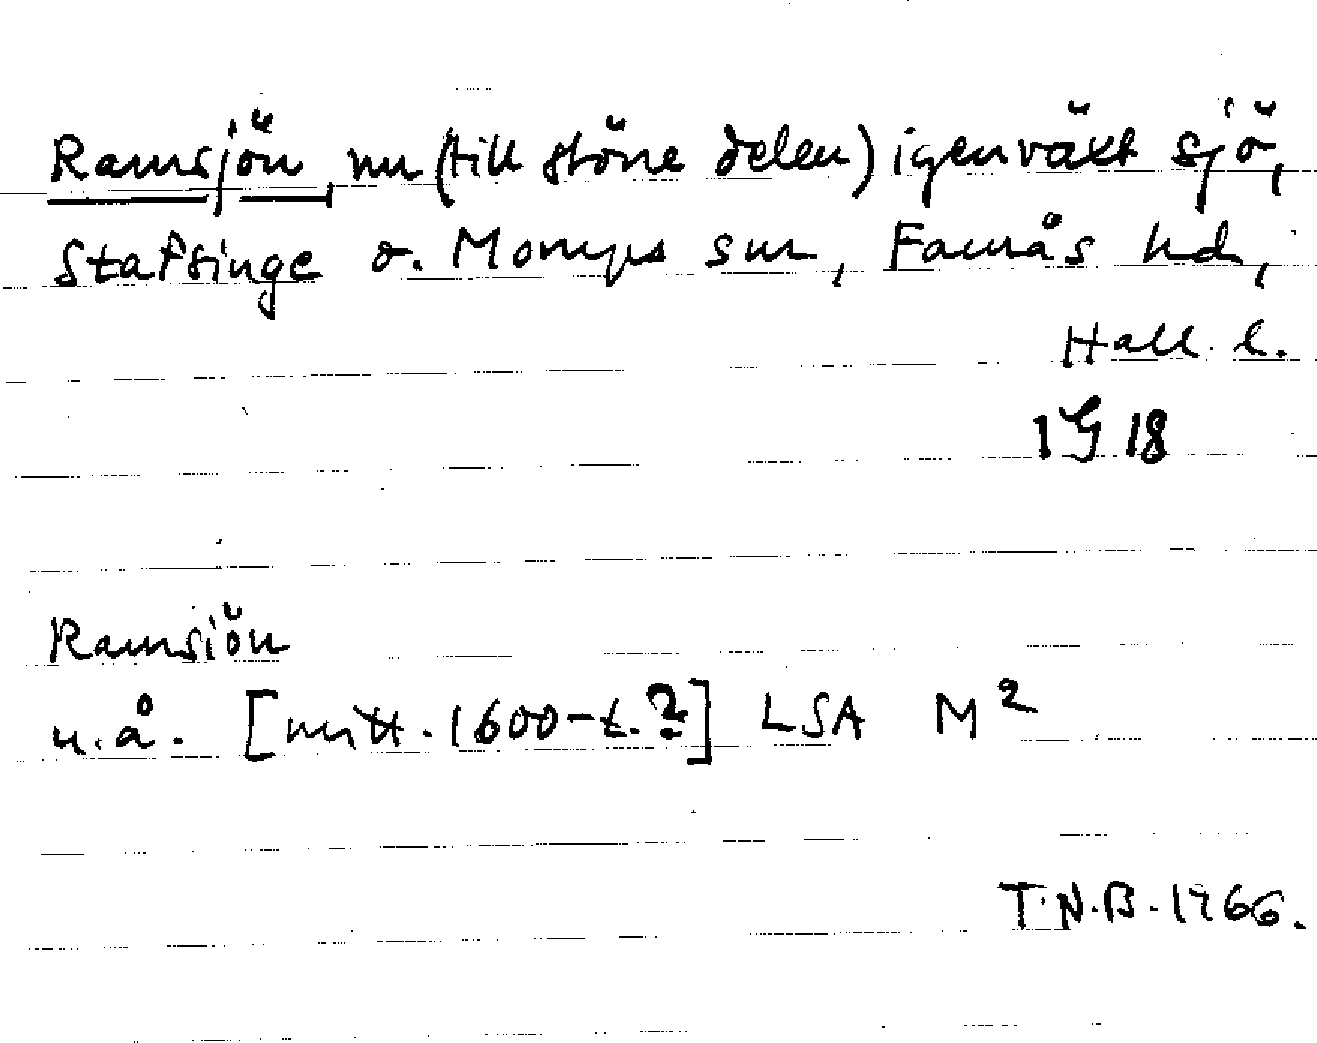 Ramsjön, nu (till större delen) igenväxt sjö,
Stafsinge o. Morups snr, Faurås hd,
Hall. l.
1G 18
Ramsiön
u.å. [mitt. 1600-t.?] LSA M²
T.N.B. 1966.